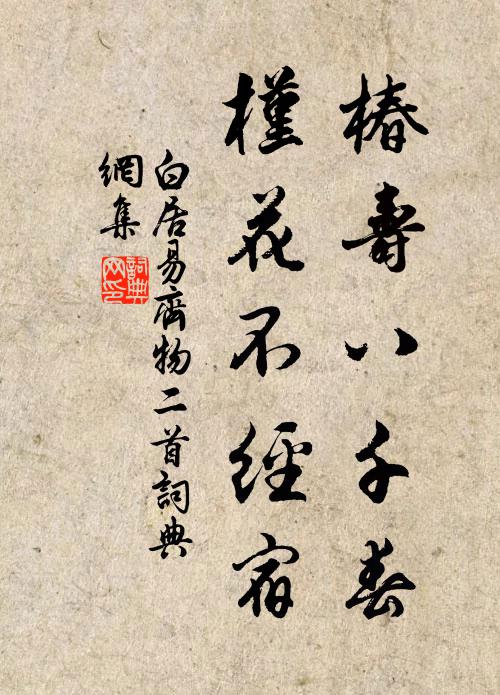 椿壽八千春
槿花不經宿
白居易齊物二首詞典
網集
詞典
网印